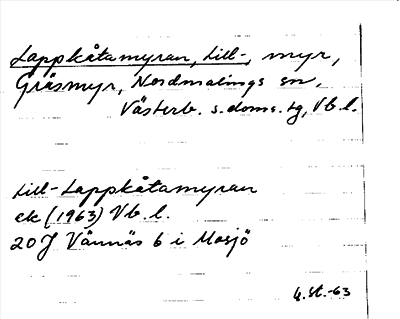 Lappkåtamyran, Lill-, myr,
Gräsmyr, Nordmalings sn,
Västerb. s. doms. tg, Vb. l.
Lill-Lappkåtamyran
ek (1963) Vb. l.
20J Vännäs 6 i Mosjö
4.st.-63